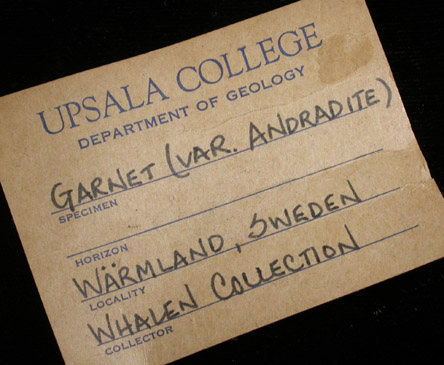 UPSALA COLLEGE
DEPARTMENT OF GEOLOGY
GARNET (VAR. ANDRADITE)
SPECIMEN
HORIZON
WÄRMLAND, SWEDEN
LOCALITY
WHALEN COLLECTION
COLLECTOR